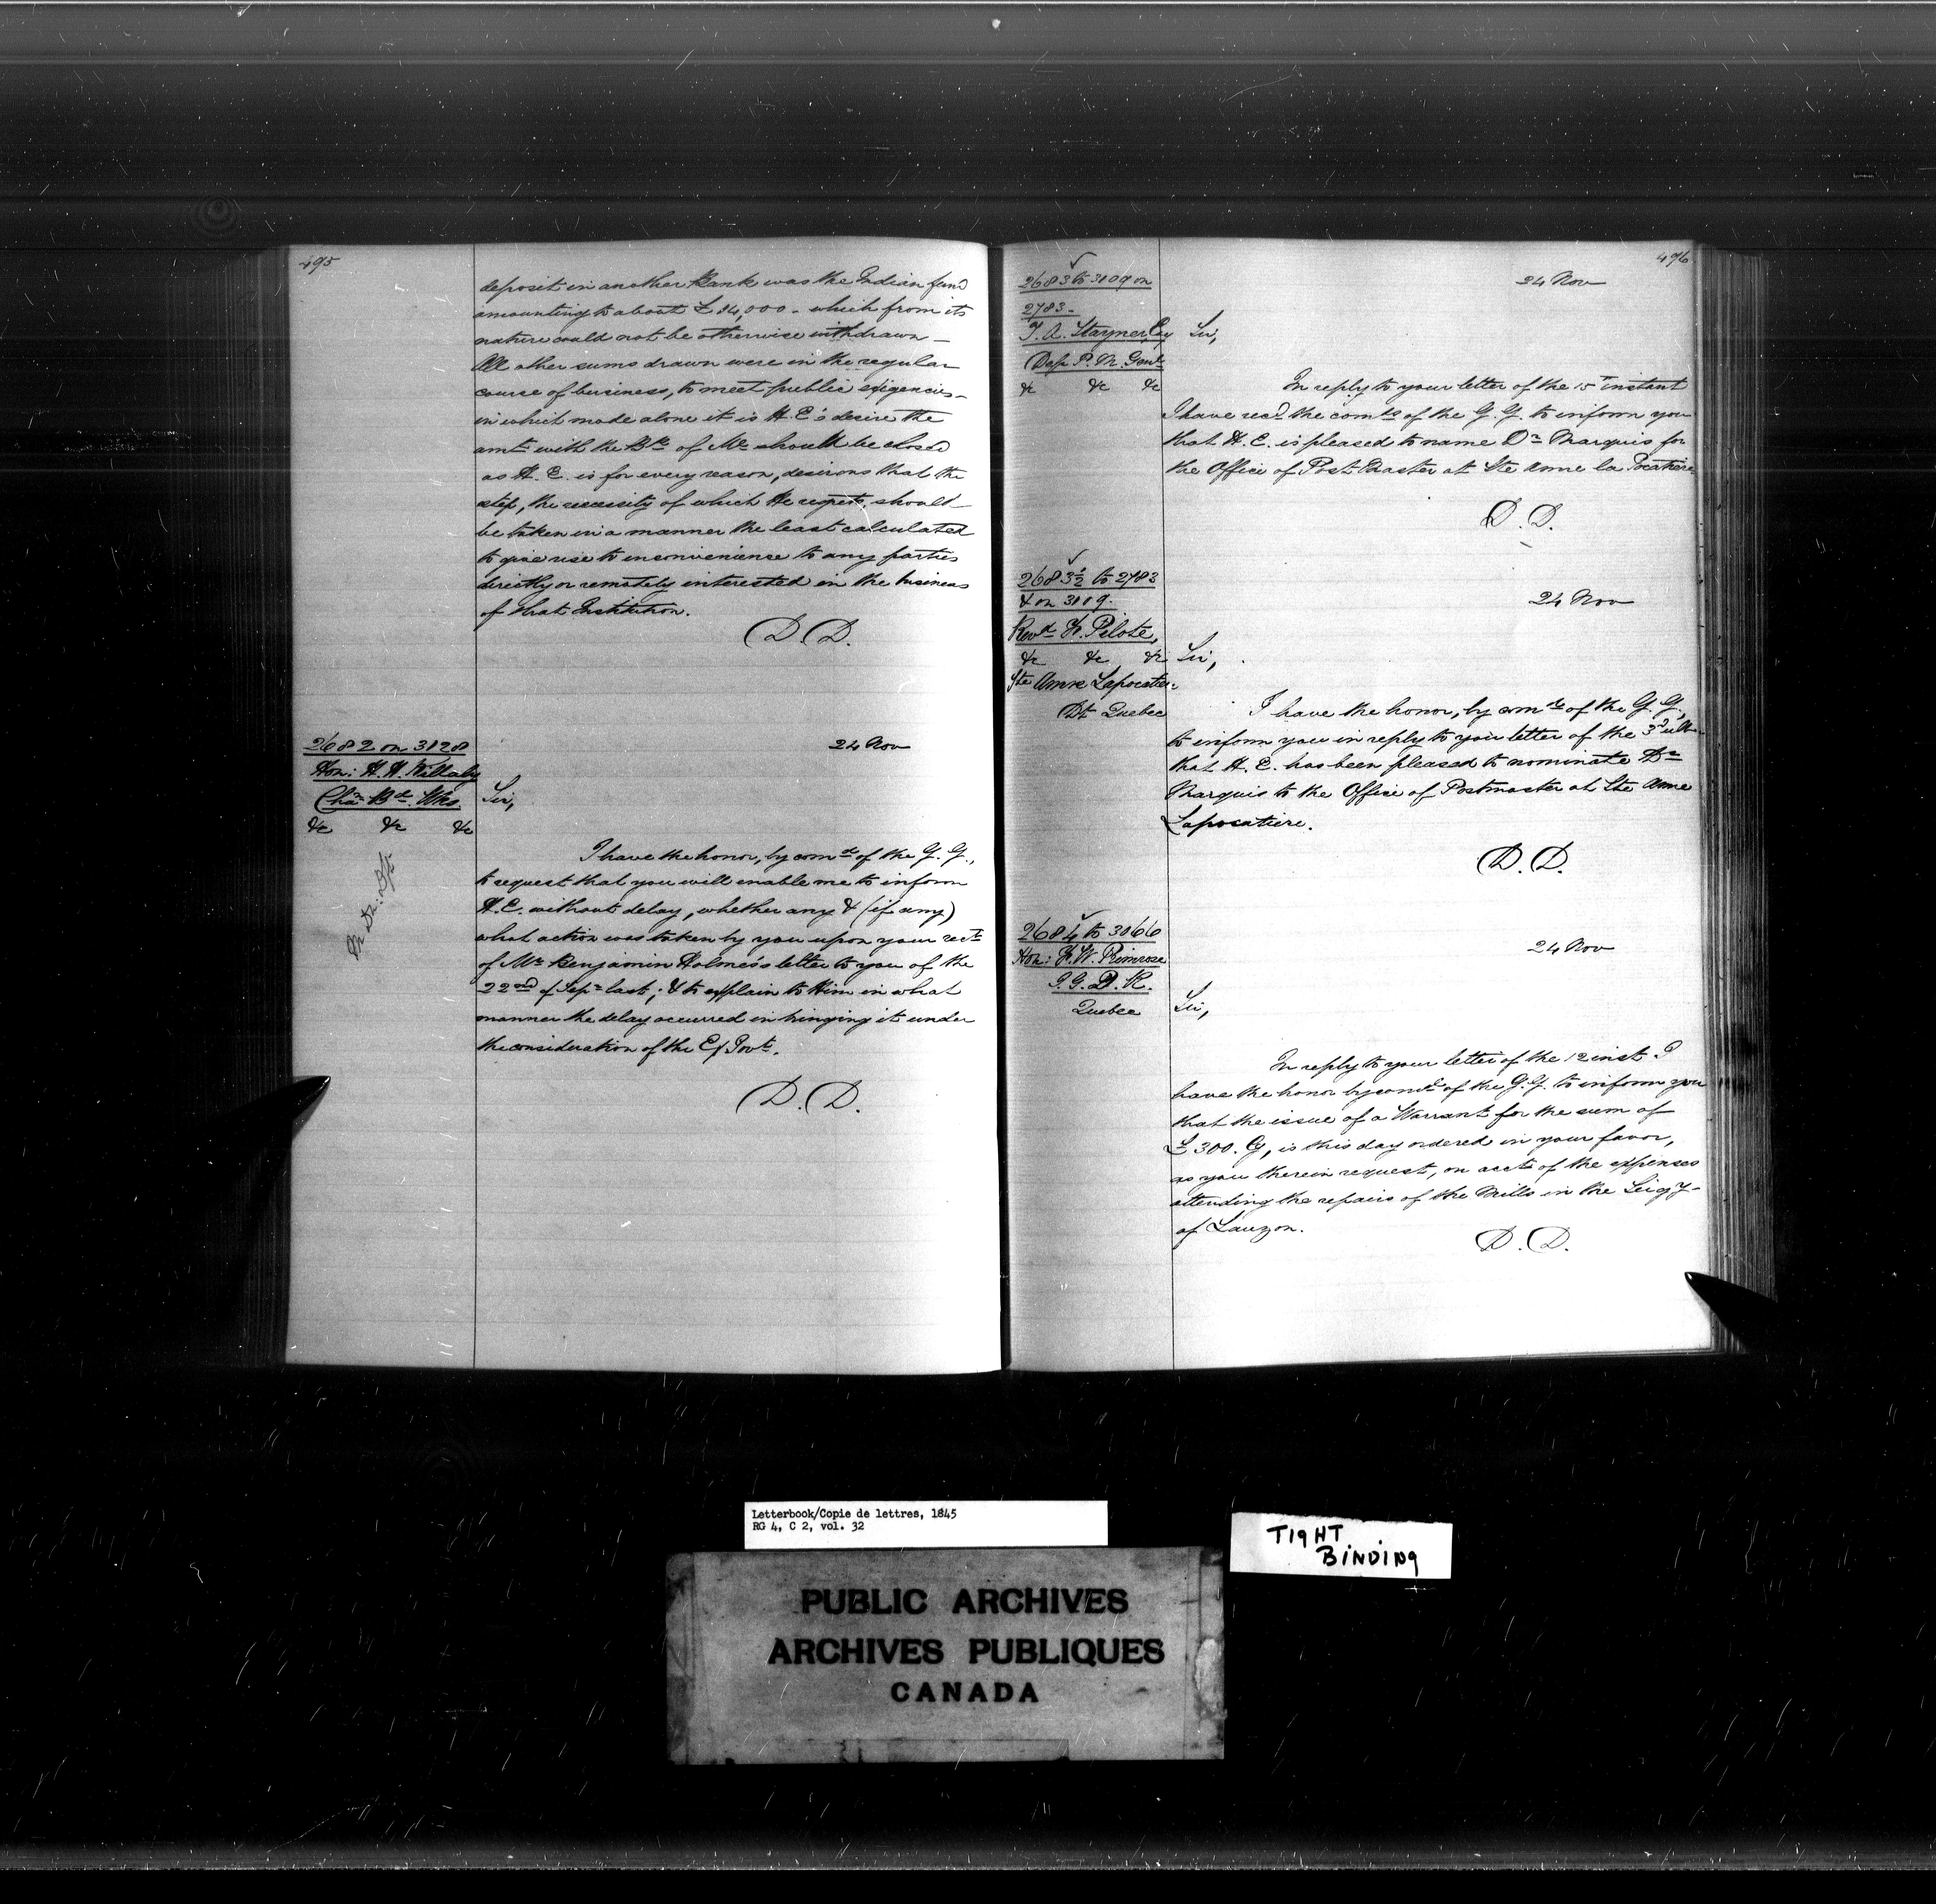 495
deposit in another Bank was the Indian fund
amounting to about £ 14,000 - which from its
nature could not be otherwise withdrawn -
All other sums drawn were in the regular
course of business, to meet public exigencies -
in which mode alone it is H. E's desire the
amt with the Bk of Ml should be closed
as H. E. is for every reason, desirous that the
step, the necessity of which He regrets, should
be taken in a manner the least calculated
to give rise to inconvenience to any parties
directly or remotely interested in the business
of that Institution.
D. D.
2682 on 3128
Hon: H. H. Killaly
Chn Bd. Wks.
&c &c &c
24 Nov
Sir,
I have the honor, by comd of the G. G.,
to request that you will enable me to inform
H. E. without delay, whether any & (if any)
what action was taken by you upon your rect
of Mr Benjamin Holmes's letter to you of the
22nd of Sepr last; & to explain to Him in what
manner the delay occurred in bringing it under
the consideration of the Ex Govt.
D. D.
496
2683 to 3109 on
2783 -
T. A. Stayner Esq
Dep P. M. Genl
&c &c &c
24 Nov
Sir,
In reply to your letter of the 15th instant
I have recd the comds of the G. G. to inform you
that H. E. is pleased to name Dr Marquis for
the Office of Post Master at Ste Anne la Pocatiere
D. D.
2683½ to 2783
& on 3109.
Revd F. Pilote,
&c &c &c
Ste Anne Lapocatiere
Dt Quebec
24 Nov
Sir,
I have the honor, by comd of the G. G.,
to inform you in reply to your letter of the 3d ulto
that H. E. has been pleased to nominate Dr
Marquis to the Office of Postmaster at Ste Anne
Lapocatiere.
D. D.
2684 to 3066
Hon: F. W. Primrose
I. G. D. K.
Quebec
24 Nov
Sir,
In reply to your letter of the 12 inst I
have the honor by comd of the G. G. to inform you
that the issue of a Warrant for the sum of
£ 300. Cy, is this day ordered in your favor,
as you therein request, on acct of the expenses
attending the repairs of the Mills in the Seigy -
of Lauzon.
D. D.
Letterbook/Copie de lettres, 1845
RG 4, C 2, vol. 32
TIGHT
BINDING
PUBLIC ARCHIVES
ARCHIVES PUBLIQUES
CANADA